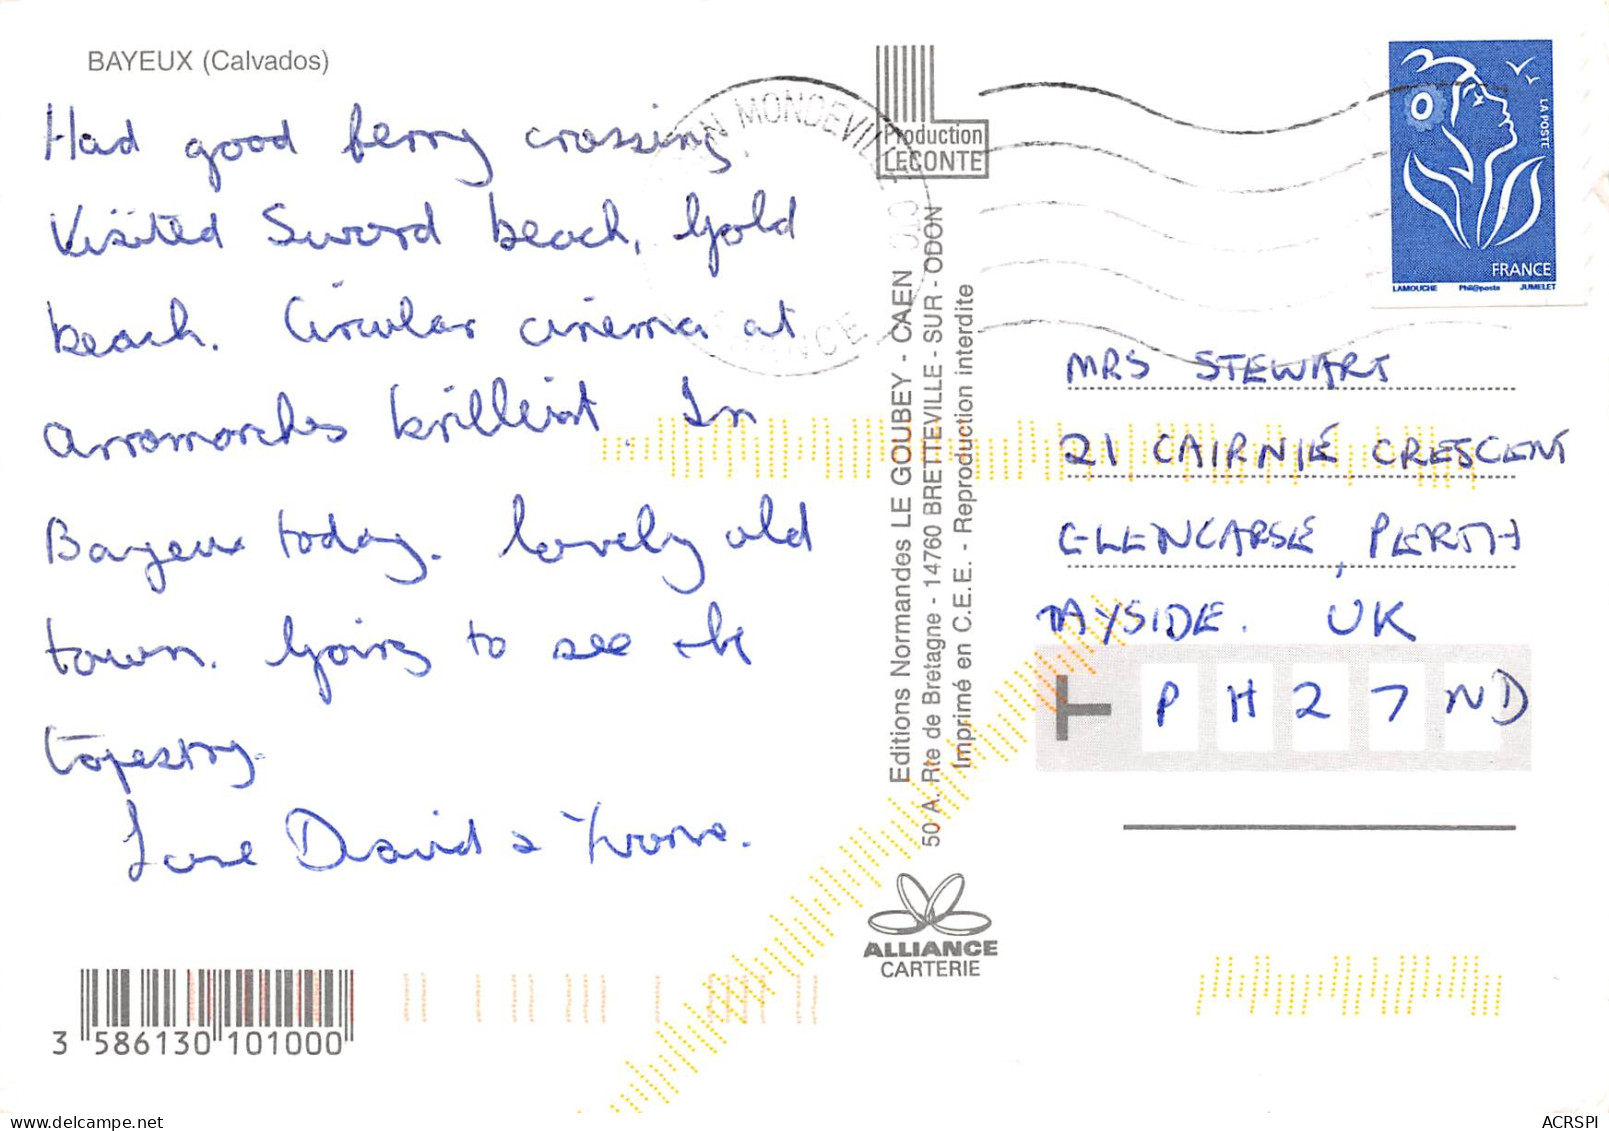 BAYEUX (Calvados)
Had good ferry crossing.
Visited Sword beach, Gold
beach. Circular cinema at
Arromanches brilliant. In
Bayeux today. Lovely old
town. Going to see the
tapestry.
Love David & Yvonne.
3 586130 101000
Production
LECONTE
MONDEVILLE
FRANCE
Editions Normandes LE GOUBEY - CAEN
50 A, Rte de Bretagne - 14760 BRETTEVILLE - SUR - ODON
Imprimé en C.E.E. - Reproduction interdite
ALLIANCE
CARTERIE
LA POSTE
FRANCE
LAMOUCHE Phil@poste JUMELET
MRS STEWART
21 CAIRNIE CRESCENT
GLENCARSE, PERTH
TAYSIDE. UK
PH2 7ND
ACRSPI